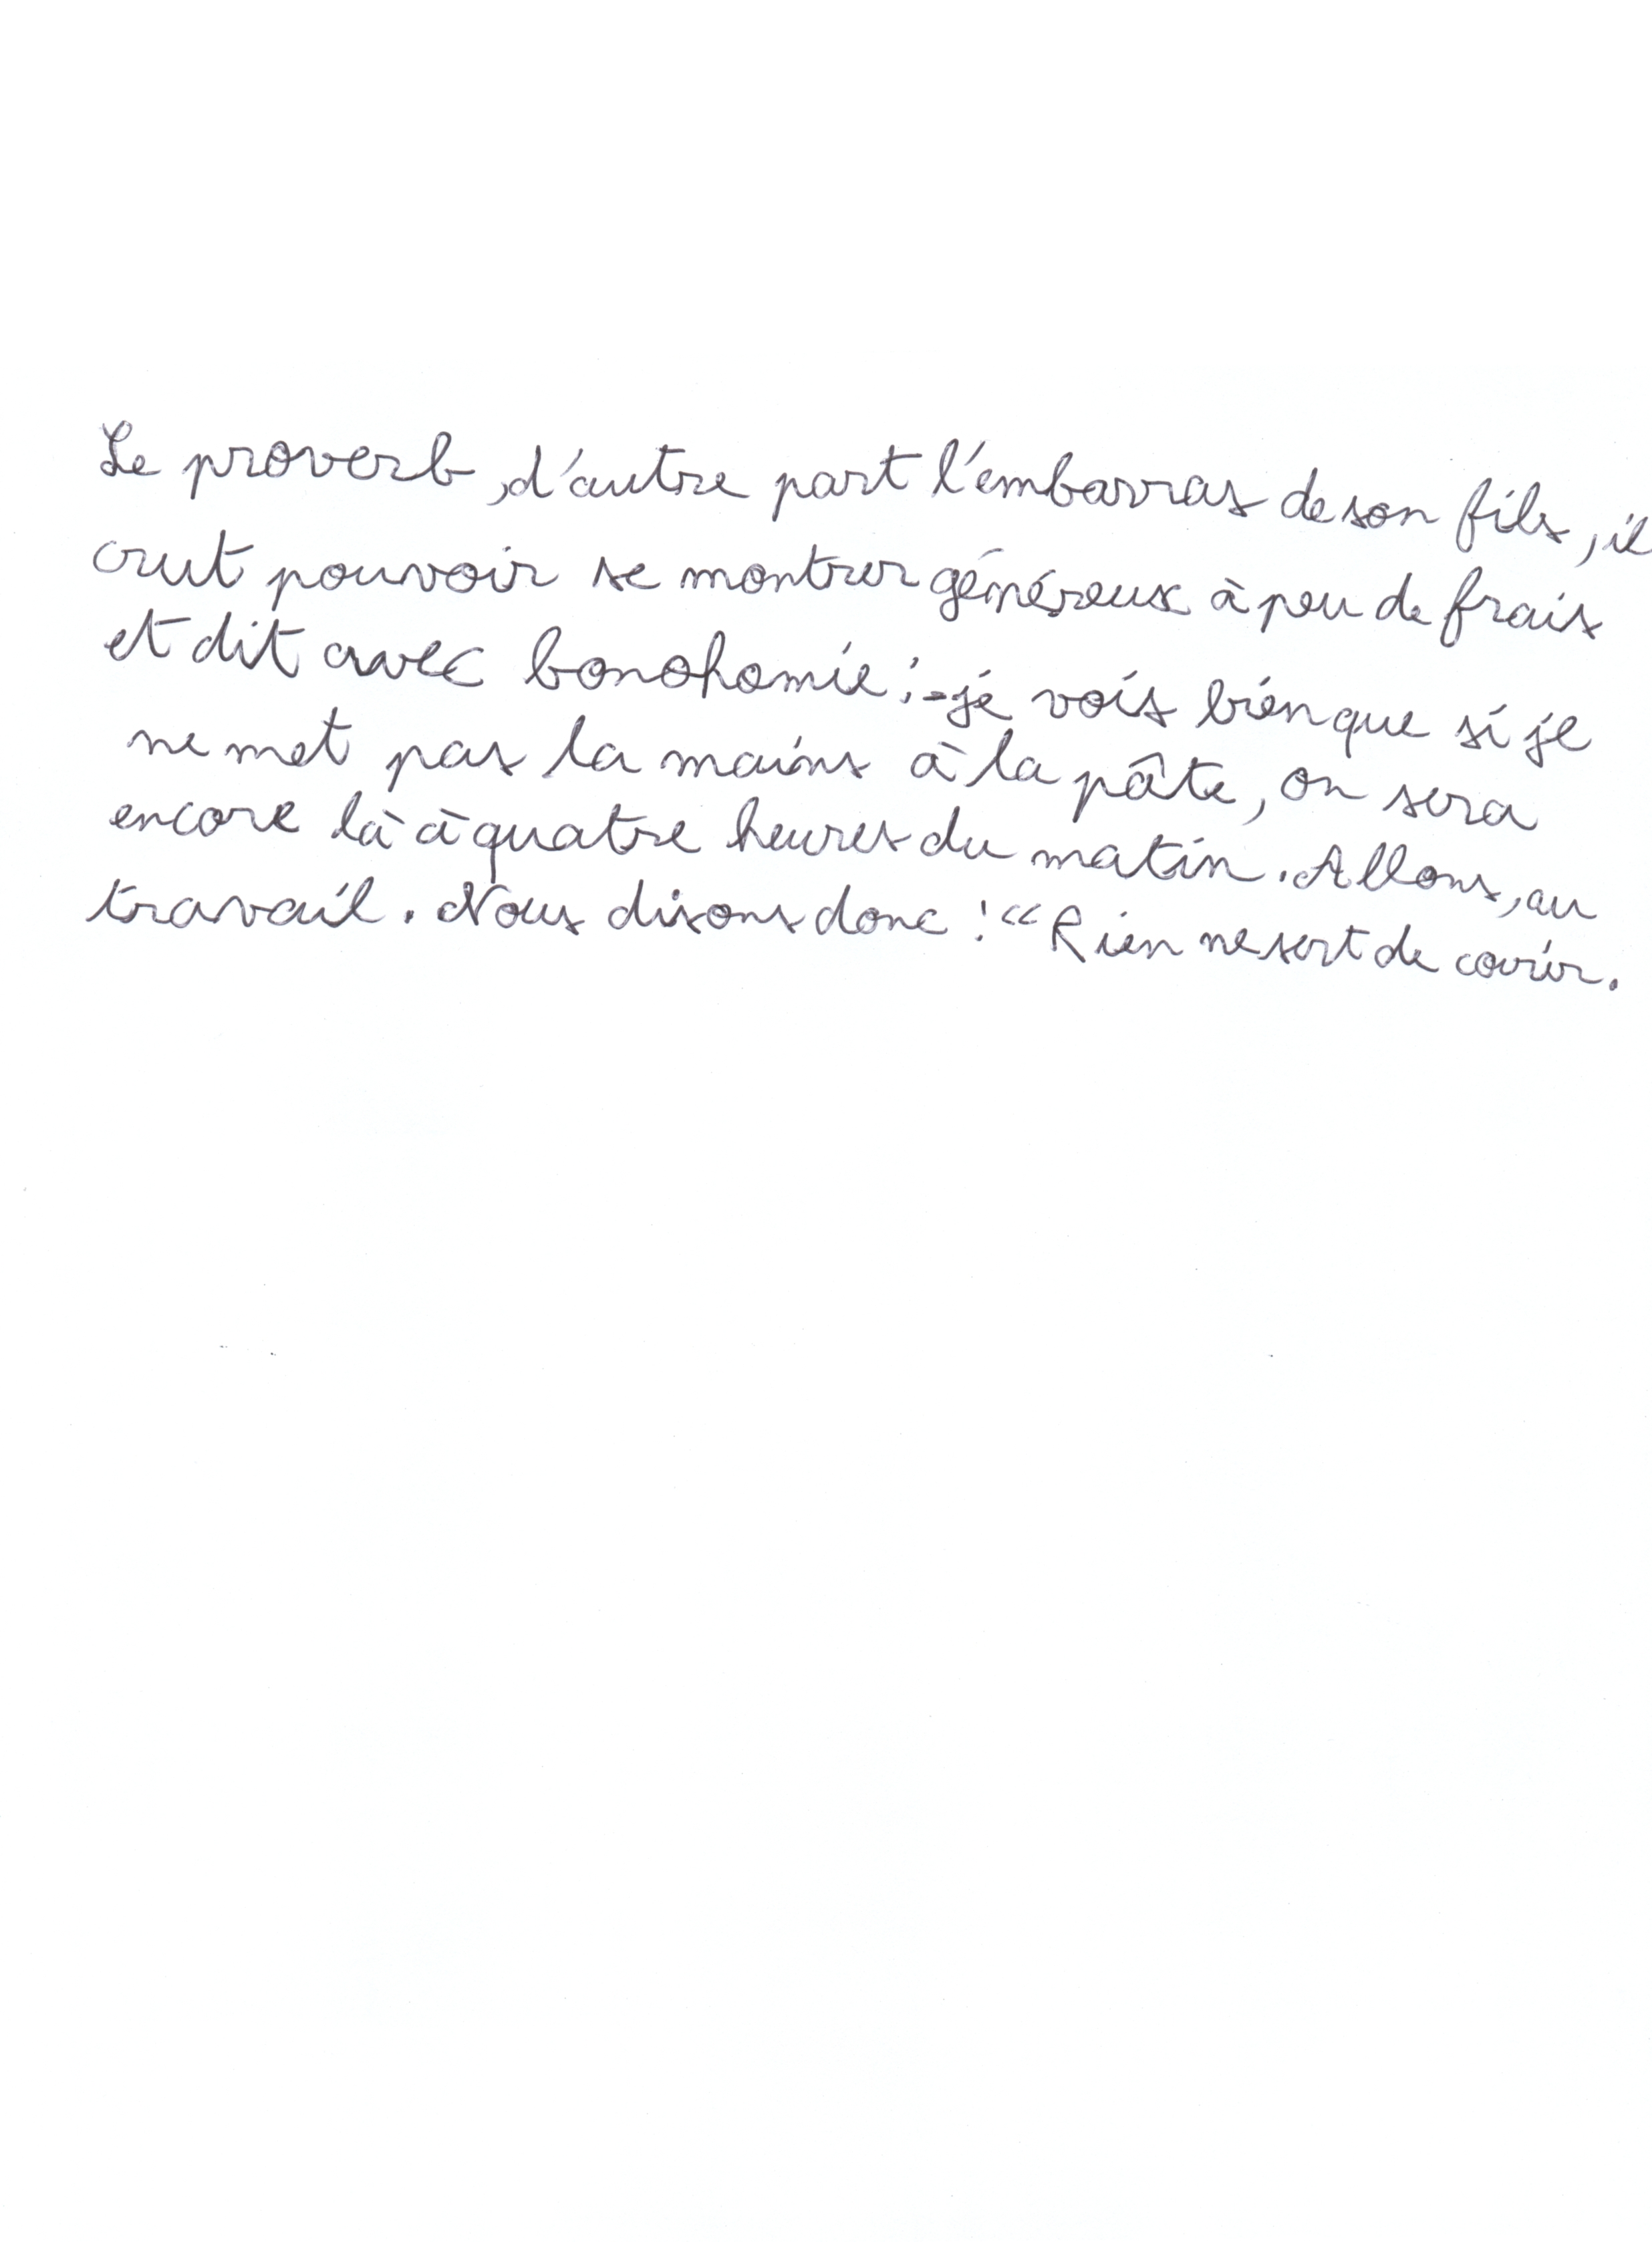 Le proverb, d'autre part l'embarras de son fils, il
crut pouvoir se montrer généreux à peu de frais
et dit avec bonohomie : - je vois bien que si je
ne met pas la mains à la pâte, on sera
encore là à quatre heures du matin. Allons, au
travail. Nous disons donc : “Rien ne sert de courir.